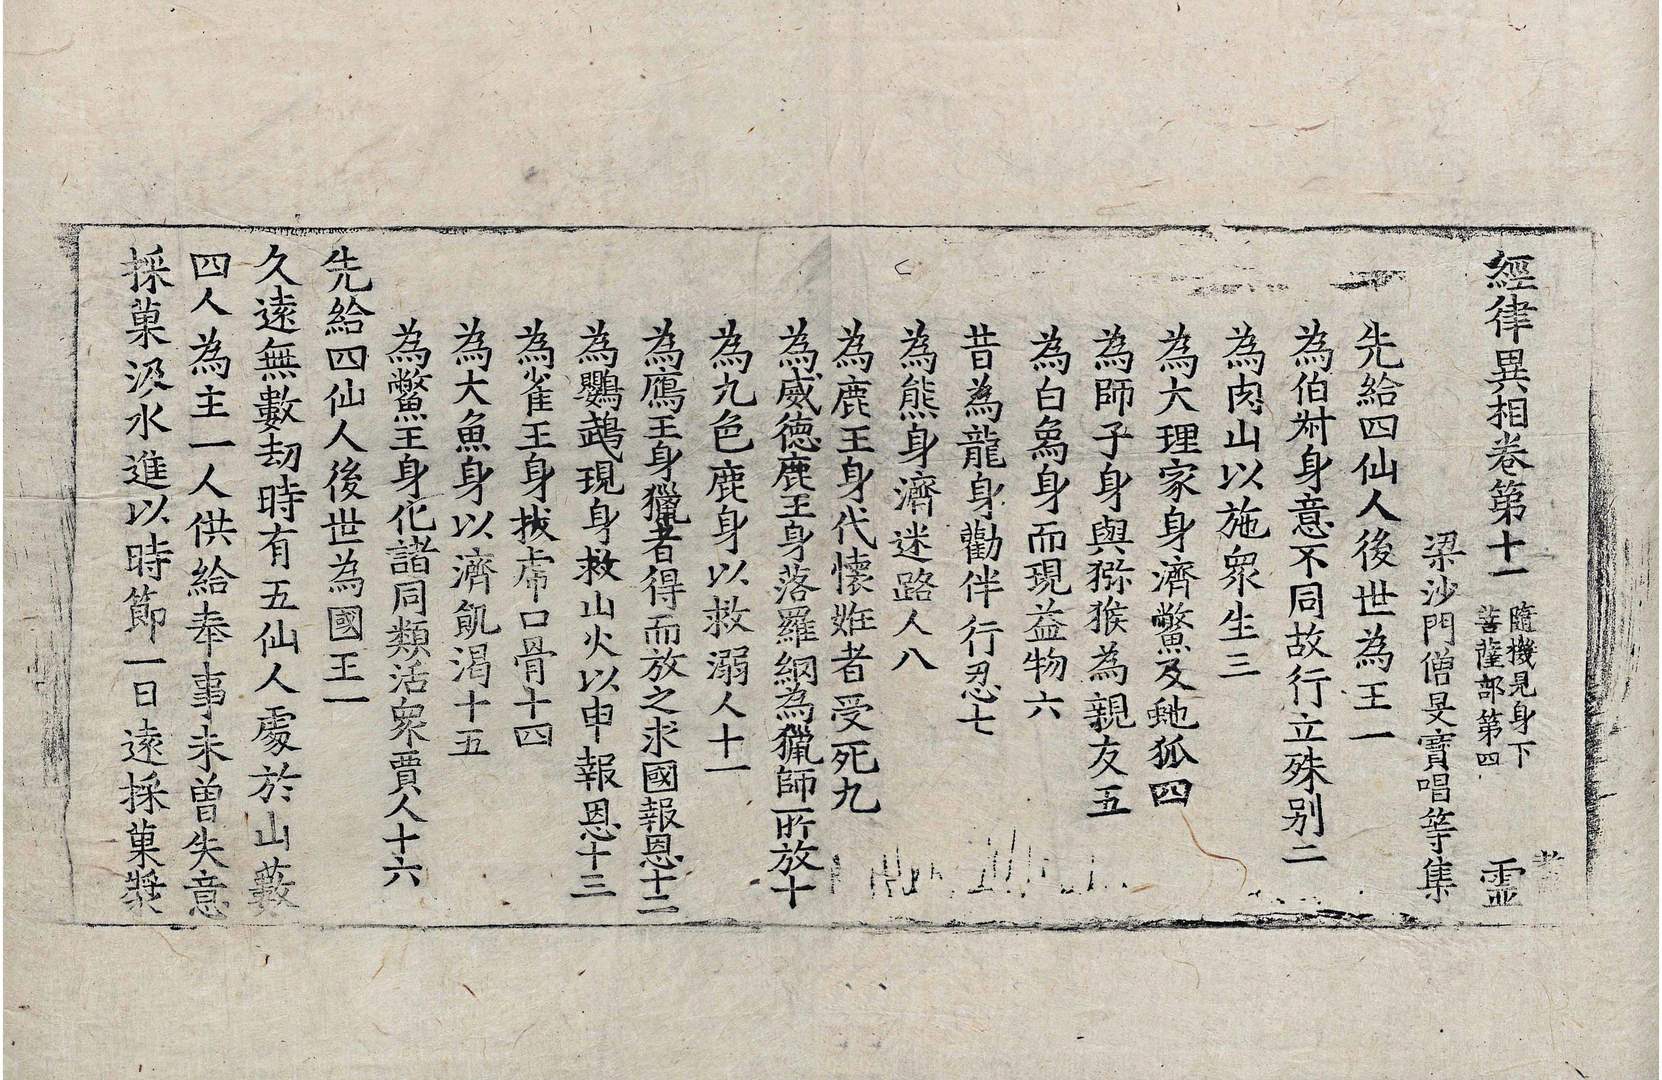 經律異相卷第十一 隨機見身下 菩薩部第四 靈
梁沙門僧旻寶唱等集
先給四仙人後世為王一
為伯叔身意不同故行立殊别二
為肉山以施衆生三
為大理家身濟鱉及虵狐四
為師子身與猕猴為親友五
為白象身而現益物六
昔為龍身勸伴行忍七
為熊身濟迷路人八
為鹿王身代懷妊者受死九
為威德鹿王身落羅網為獵師所放十
為九色鹿身以救溺人十一
為鴈王身獵者得而放之求國報恩十二
為鸚鵡現身救山火以申報恩十三
為雀王身拔虎口骨十四
為大魚身以濟飢渴十五
為鱉王身化諸同類活衆賈人十六
先給四仙人後世為國王一
久遠無數劫時有五仙人處於山藪
四人為主一人供給奉事未曽失意
採菓汲水進以時節一日遠採菓漿